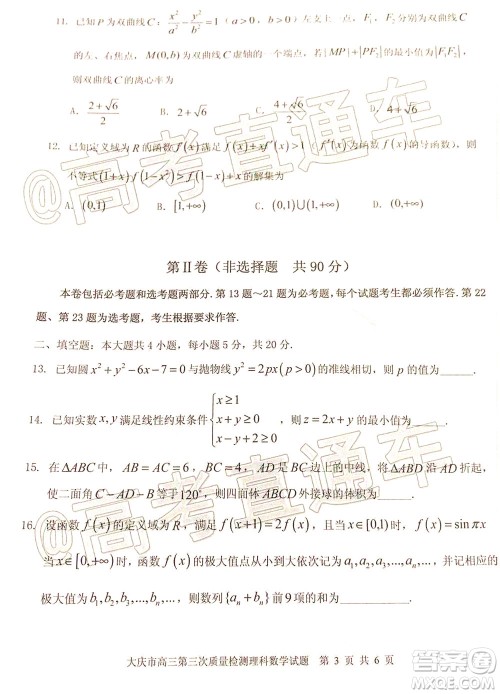 11. 已知 P 为双曲线 C: x²/a² − y²/b² = 1 (a>0, b>0) 上一点, F₁, F₂ 分别为双曲线 C
的左、右焦点, M(0,b) 为双曲线 C 虚轴的一个端点, 若 |MP|+|PF₂| 的最小值为 |F₁F₂|
则双曲线 C 的离心率为
A. (2+√6)/2 B. 2+√6 C. D. 4+√6
12. 已知定义域为 R 的函数 f(x) 满足 (x) 为函数 f(x) 的导函数), 则不
等式 (1+x)f(1−x²)>f(1−x) 的解集为
A. (0,1) B. [1,+∞) C. (0,1)∪(1,+∞) D. (0,+∞)
第Ⅱ卷（非选择题 共 90 分）
本卷包括必考题和选考题两部分. 第 13 题～21 题为必考题, 每个试题考生都必须作答. 第 22
题、第 23 题为选考题, 考生根据要求作答.
二、填空题: 本大题共 4 小题, 每小题 5 分, 共 20 分.
13. 已知圆 x²+y²−6x−7=0 与抛物线 y²=2px(p>0) 的准线相切, 则 p 的值为______.
14. 已知实数 x,y 满足线性约束条件 { x≥1 x+y≥0 x−y+2≥0 , 则 z=2x+y 的最小值为______.
15. 在△ABC 中, AB=AC=6, BC=6√3, AD 为边 BC 上的中线, 将△ABD 沿 AD 折起,
使二面角 C−AD−B 等于 120°, 则四面体 ABCD 外接球的表面积为______.
16. 设函数 f(x) 的定义域为 R, 满足 f(x+1)=2f(x), 且当 x∈[0,1) 时, f(x)=sinπx
当 x∈[0,+∞) 时, 函数 f(x) 的极大值点从小到大依次记为 a₁,a₂,a₃,...,aₙ,..., 并记相应的
极大值为 b₁,b₂,b₃,...,bₙ,..., 则数列 {aₙ+bₙ} 前 9 项的和为______.
大庆市高三第三次质量检测理科数学试题 第 3 页 共 6 页
@高考直通车
@高考直通车